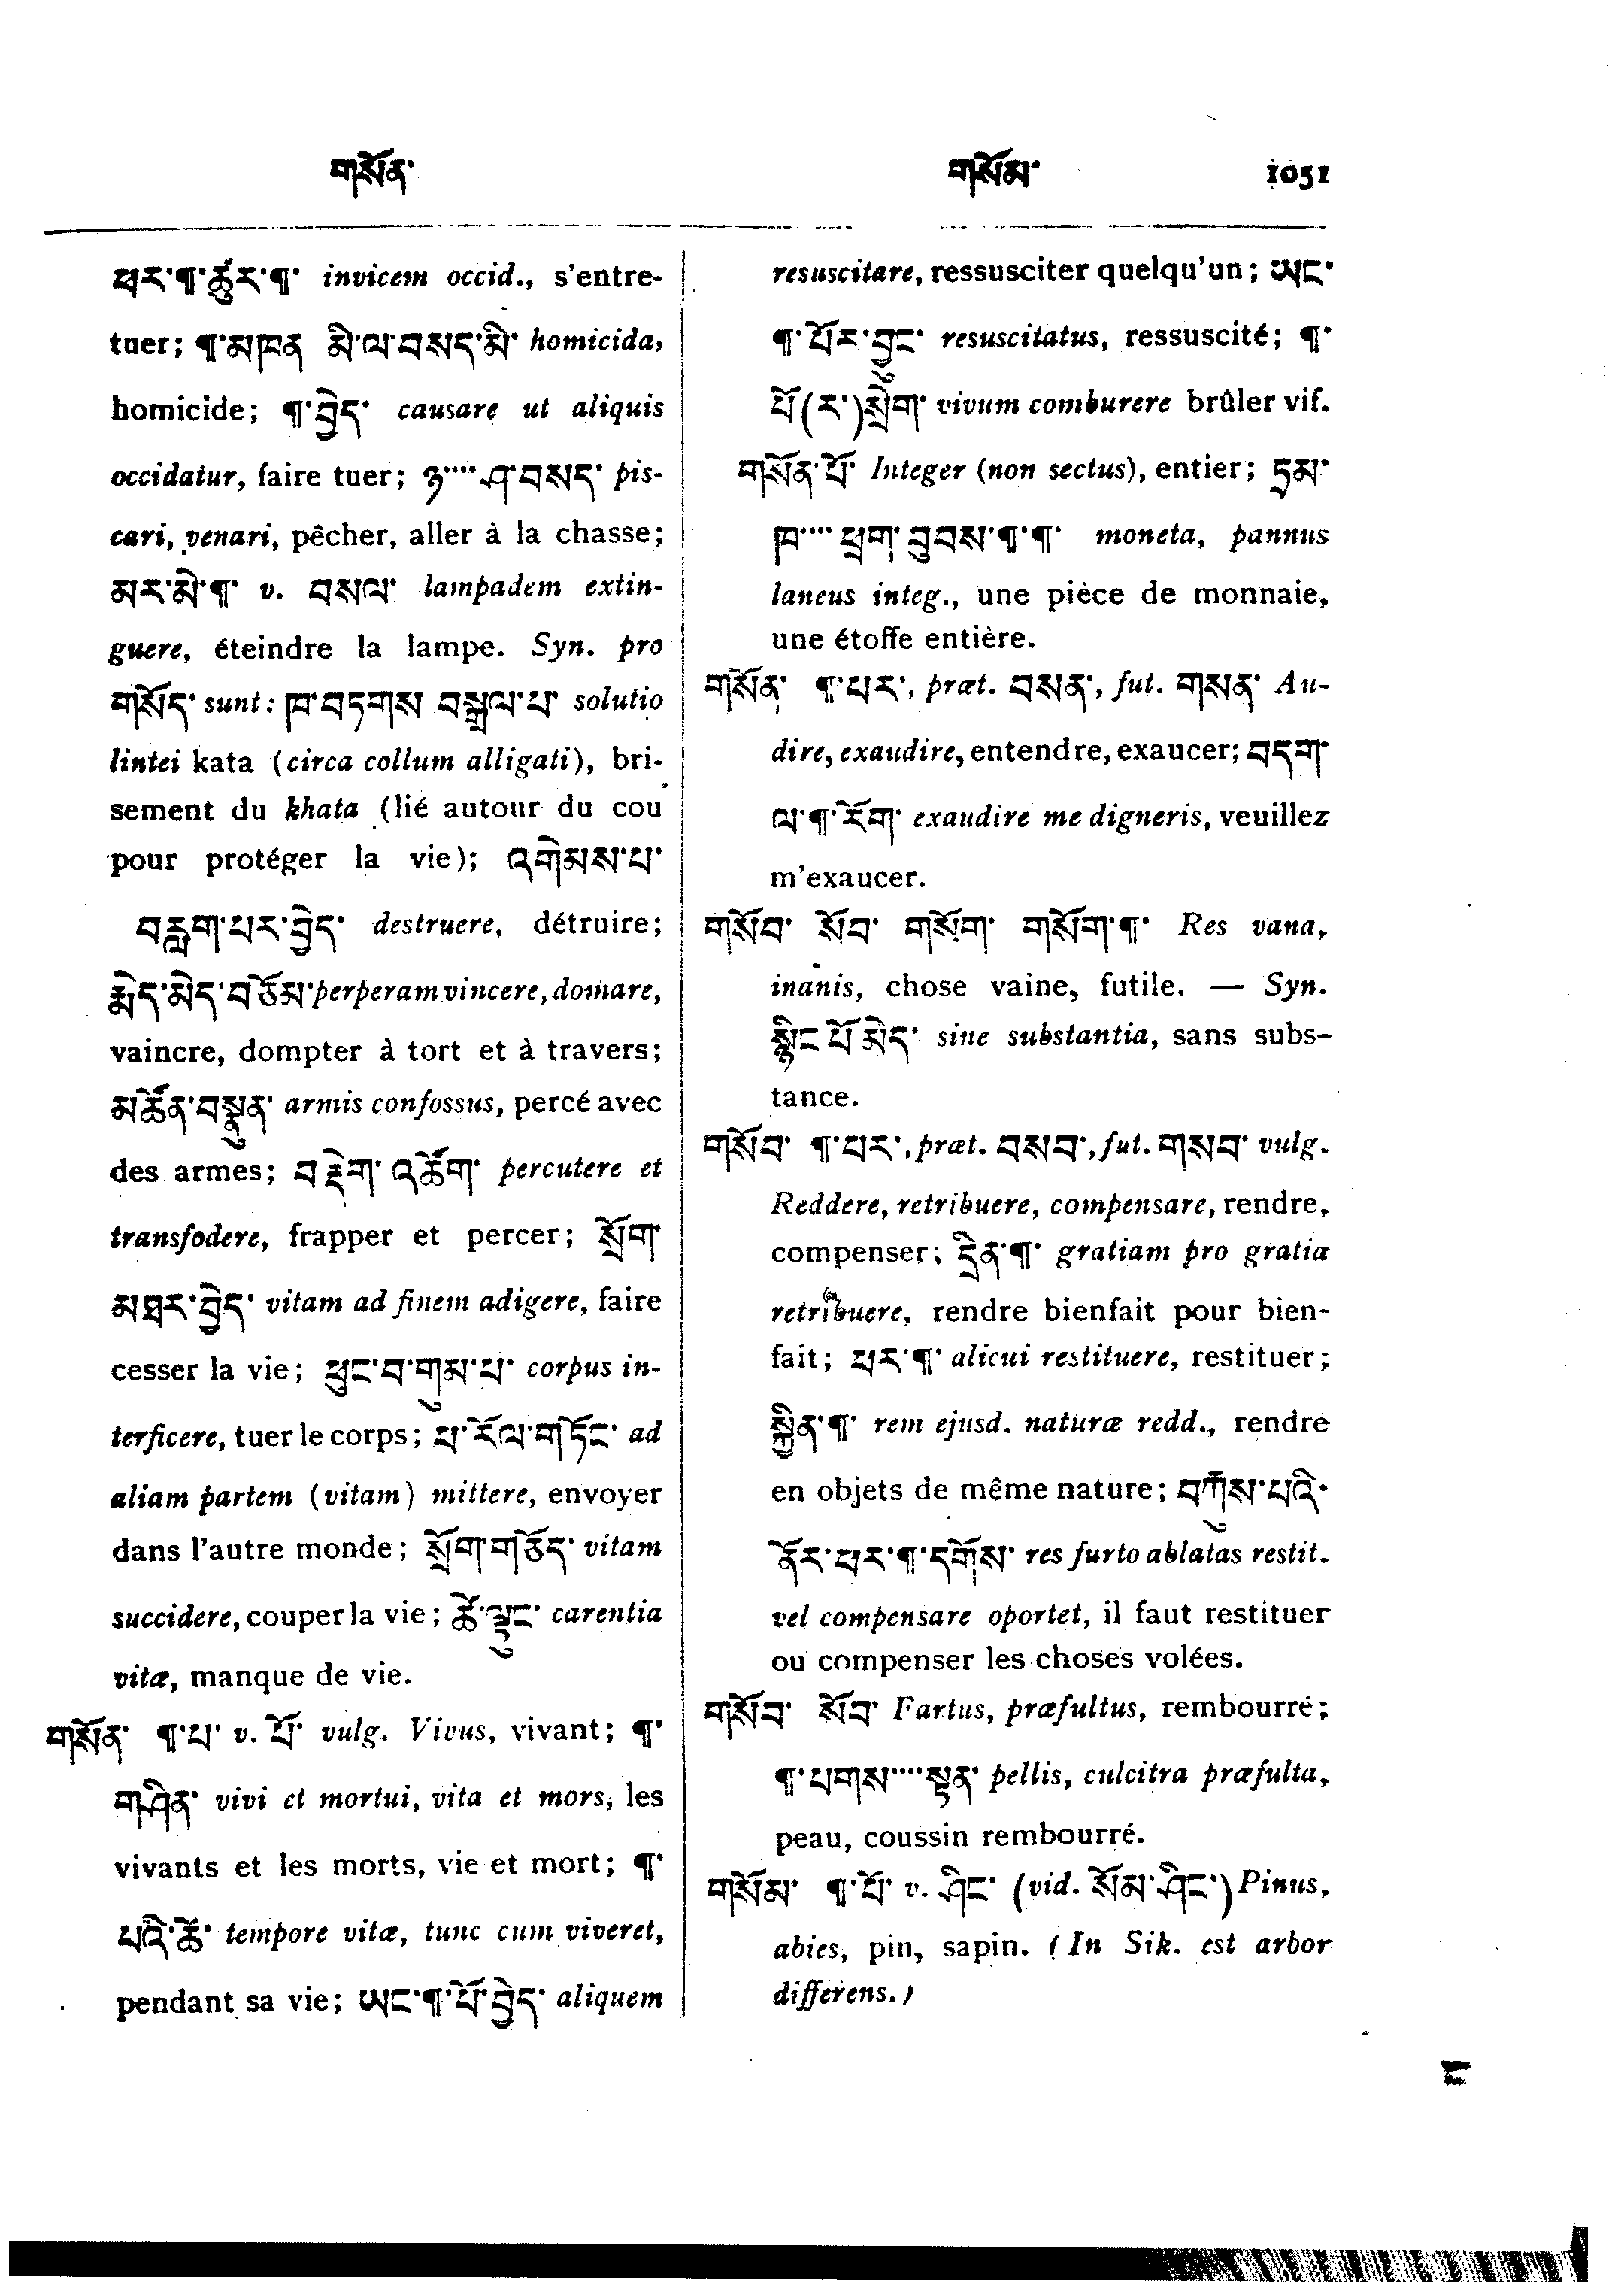 གསོན་ གསོམ་ 1051
ཕར་¶་ཚུར་¶་ invicem occid., s'entre-
tuer; ¶་མཁན མི་ལ་བསད་མི་ homicida,
homicide; ¶་བྱེད་ causare ut aliquis
occidatur, faire tuer; ཉ་····ཤ་བསད་ pis-
cari, venari, pêcher, aller à la chasse;
མར་མེ་¶་ v. བསལ་ lampadem extin-
guere, éteindre la lampe. Syn. pro
གསོད་ sunt: ཁ་བཏགས བསྒྲལ་པ་ solutio
lintei kata (circa collum alligati), bri-
sement du khata (lié autour du cou
pour protéger la vie); འགེམས་པ་
བརླག་པར་བྱེད་ destruere, détruire;
རྨེད་མེད་བཅོམ་ perperam vincere, domare,
vaincre, dompter à tort et à travers;
མཚོན་བསྣུན་ armis confossus, percé avec
des armes; བརྡེག་འཚོག་ percutere et
transfodere, frapper et percer; སྲོག་
མཐར་བྱེད་ vitam ad finem adigere, faire
cesser la vie; ཕུང་བ་གུམ་པ་ corpus in-
terficere, tuer le corps; ཕ་རོལ་གཏོང་ ad
aliam partem (vitam) mittere, envoyer
dans l'autre monde; སྲོག་གཅོད་ vitam
succidere, couper la vie; ཚེ་ལྟུང་ carentia
vitæ, manque de vie.
གསོན་ ¶་པ་ v. པོ་ vulg. Vivus, vivant; ¶་
གཤིན་ vivi et mortui, vita et mors, les
vivants et les morts, vie et mort; ¶་
པའི་ཚེ་ tempore vitæ, tunc cum viveret,
pendant sa vie; ཡང་¶་པོ་བྱེད་ aliquem
resuscitare, ressusciter quelqu'un; ཡང་
¶་པོར་བྱུང་ resuscitatus, ressuscité; ¶་
པོ་(ར་)སྲེག་ vivum comburere brûler vif.
གསོན་པོ་ Integer (non sectus), entier; ཏྲམ་
ཁ་···· ཕྲུག་ བུབས་¶་¶་ moneta, pannus
laneus integ., une pièce de monnaie,
une étoffe entière.
གསོན་ ¶་པར་, præt. བསན་, fut. གསན་ Au-
dire, exaudire, entendre, exaucer; བདག་
ལ་¶་རོག་ exaudire me digneris, veuillez
m'exaucer.
གསོབ་ སོབ་ གསོག་ གསོག་¶་ Res vana,
inanis, chose vaine, futile. — Syn.
སྙིང་པོ་མེད་ sine substantia, sans subs-
tance.
གསོབ་ ¶་པར་, præt. བསབ་, fut. གསབ་ vulg.
Reddere, retribuere, compensare, rendre,
compenser; དྲིན་¶་ gratiam pro gratia
retribuere, rendre bienfait pour bien-
fait; ཕར་¶་ alicui restituere, restituer;
སྐྱིན་¶་ rem ejusd. naturæ redd., rendre
en objets de même nature; བཀུས་པའི་
ནོར་ཕར་¶་དགོས་ res furto ablatas restit.
vel compensare oportet, il faut restituer
ou compenser les choses volées.
གསོབ་ སོབ་ Fartus, præfultus, rembourré;
¶་པགས་····སྟན་ pellis, culcitra præfulta,
peau, coussin rembourré.
གསོམ་ ¶་པོ་ v. ཤིང་ (vid. སོམ་ཤིང་) Pinus,
abies, pin, sapin. (In Sik. est arbor
differens.)